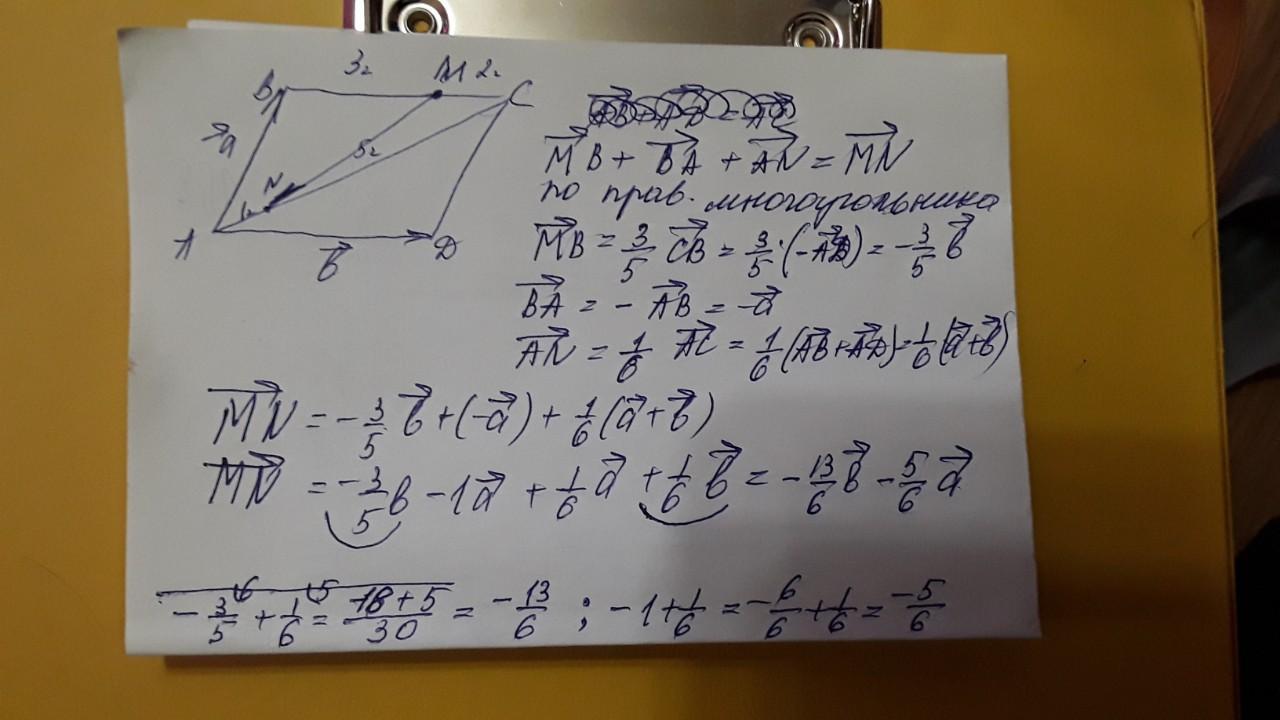 B 3z M 2z C
a⃗ 5z
N 1z
A b⃗ D
MB⃗ + BA⃗ + AN⃗ = MN⃗
по прав. многоугольника
MB⃗ = 3/5 CB⃗ = 3/5·(-AD⃗) = -3/5 b⃗
BA⃗ = - AB⃗ = -a⃗
AN⃗ = 1/6 AC⃗ = 1/6(AB⃗+AD⃗)=1/6(a⃗+b⃗)
MN⃗ = -3/5 b⃗ + (-a⃗) + 1/6(a⃗+b⃗)
MN⃗ = -3/5 b - 1a⃗ + 1/6 a⃗ + 1/6 b⃗ = -13/6 b⃗ - 5/6 a⃗
6 5
-3/5 + 1/6 = -18+5/30 = -13/6 ; -1+1/6 = -6/6+1/6 = -5/6